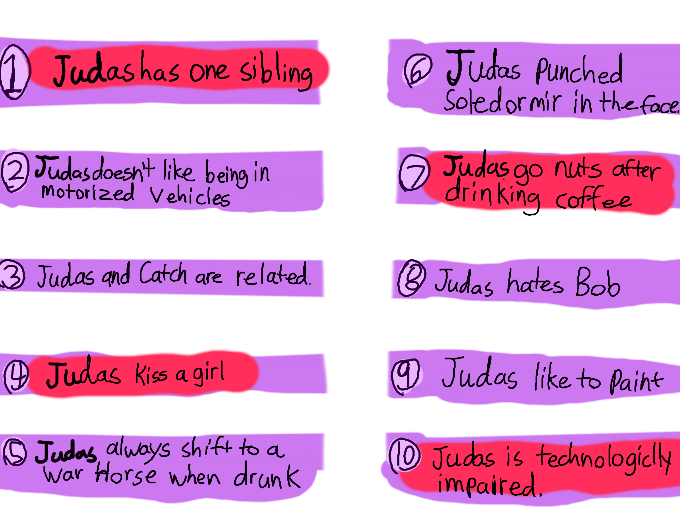 1 Judas has one sibling
2 Judas doesn't like being in
motorized vehicles
3 Judas and Catch are related.
4 Judas kiss a girl
5 Judas always shift to a
war Horse when drunk
6 Judas Punched
Soledormir in the face
7 Judas go nuts after
drinking coffee
8 Judas hates Bob
9 Judas like to Paint
10 Judas is technologiclly
impaired.